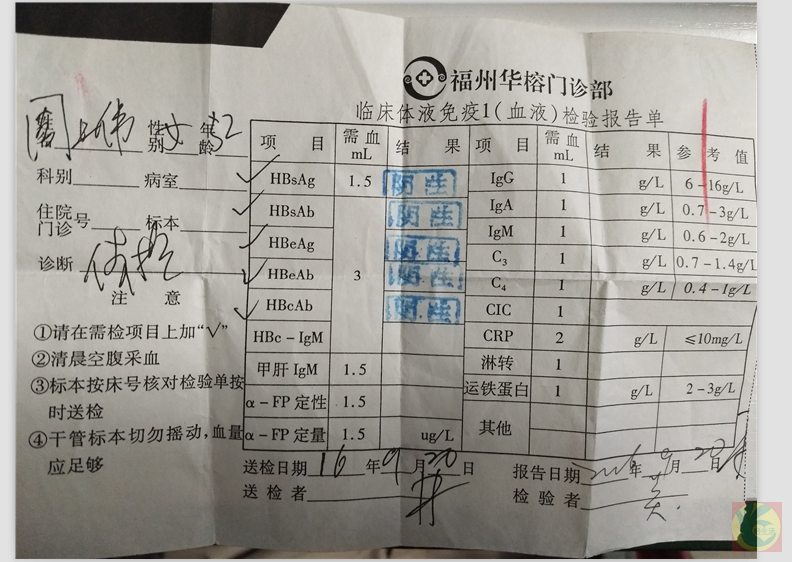 福州华榕门诊部
临床体液免疫1(血液)检验报告单
性别 女 年龄 32
科别 病室
住院 门诊 号 标本
诊断 体检
注意
①请在需检项目上加“√”
②清晨空腹采血
③标本按床号核对检验单按
时送检
④干管标本切勿摇动,血量
应足够
项目 需血 mL 结果 项目 需血 mL 结果 参考值
√ HBsAg 1.5 阴性 IgG 1 g/L 6-16g/L
√ HBsAb 3 IgA 1 g/L 0.7-3g/L
√ HBeAg IgM 1 g/L 0.6-2g/L
√ HBeAb C₃ 1 g/L 0.7-1.4g/L
√ HBcAb C₄ 1 g/L 0.4-1g/L
HBc-IgM CIC 1
甲肝 IgM 1.5 CRP 2 g/L ≤10mg/L
α-FP 定性 1.5 淋转 1
α-FP 定量 1.5 ug/L 运铁蛋白 1 g/L 2-3g/L
其他
送检日期 16 年 9 月 20 日 报告日期 2016 年 9 月 20 日
送检者 检验者